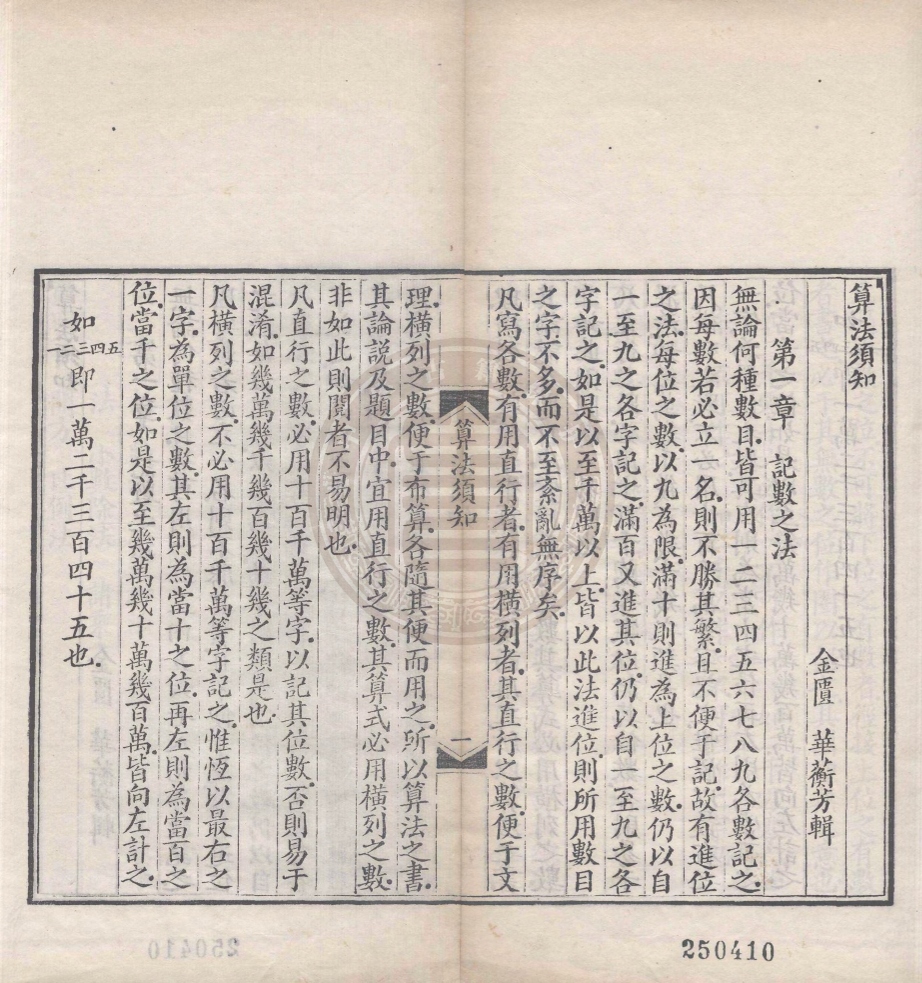 算法須知
金匱　華蘅芳輯
第一章　記數之法
無論何種數目、皆可用一二三四五六七八九各數記之、
因每數若必立一名、則不勝其繁、且不便于記、故有進位
之法、每位之數、以九為限、滿十則進為上位之數、仍以自
一至九之各字記之、滿百又進其位、仍以自一至九之各
字記之、如是以至千萬以上、皆以此法進位、則所用數目
之字不多、而不至紊亂無序矣、
凡寫各數、有用直行者、有用橫列者、其直行之數、便于文
算法須知
一
理、橫列之數、便于布算、各隨其便而用之、所以算法之書、
其論說及題目中、宜用直行之數、其算式必用橫列之數、
非如此則閱者不易明也、
凡直行之數、必用十百千萬等字、以記其位數、否則易于
混淆、如幾萬幾千幾百幾十幾之類是也、
凡橫列之數、不必用十百千萬等字記之、惟恆以最右之
一字、為單位之數、其左則為當十之位、再左則為當百之
位、當千之位、如是以至幾萬幾十萬幾百萬、皆向左計之、
如一二三四五即一萬二千三百四十五也、
250410